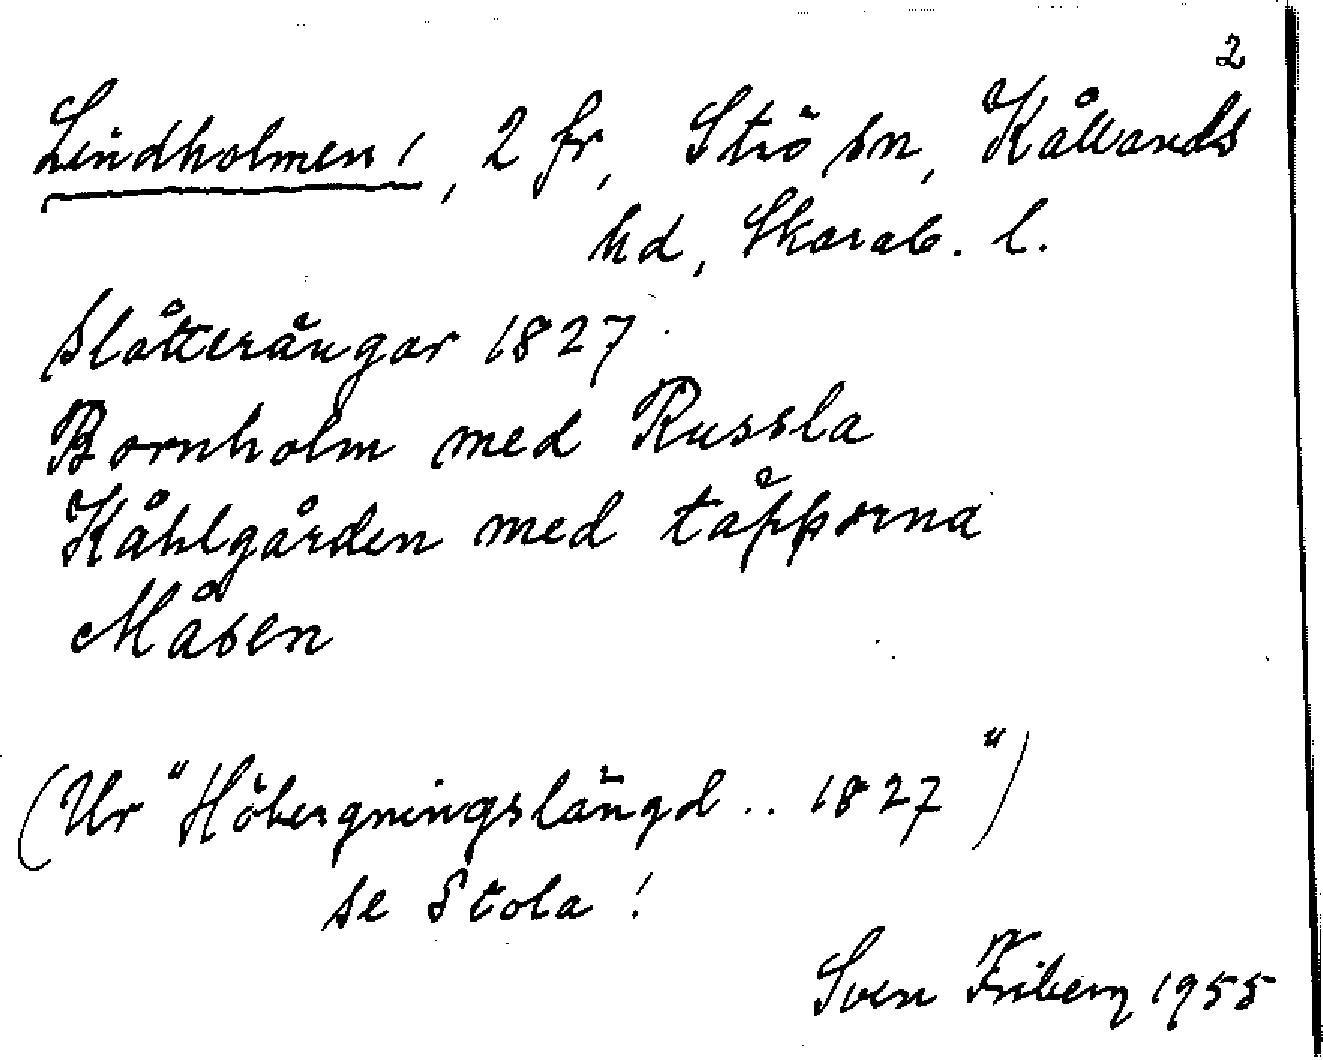 2
Lindholmen!, 2 fr, Strö sn, Kållands
hd, Skarab. l.
Slåtterängar 1827
Bornholm med Russla
Kåhlgården med täpporna
Måsen
(Ur "Höbergningslängd .. 1827")
se Stola!
Sven Friberg 1955